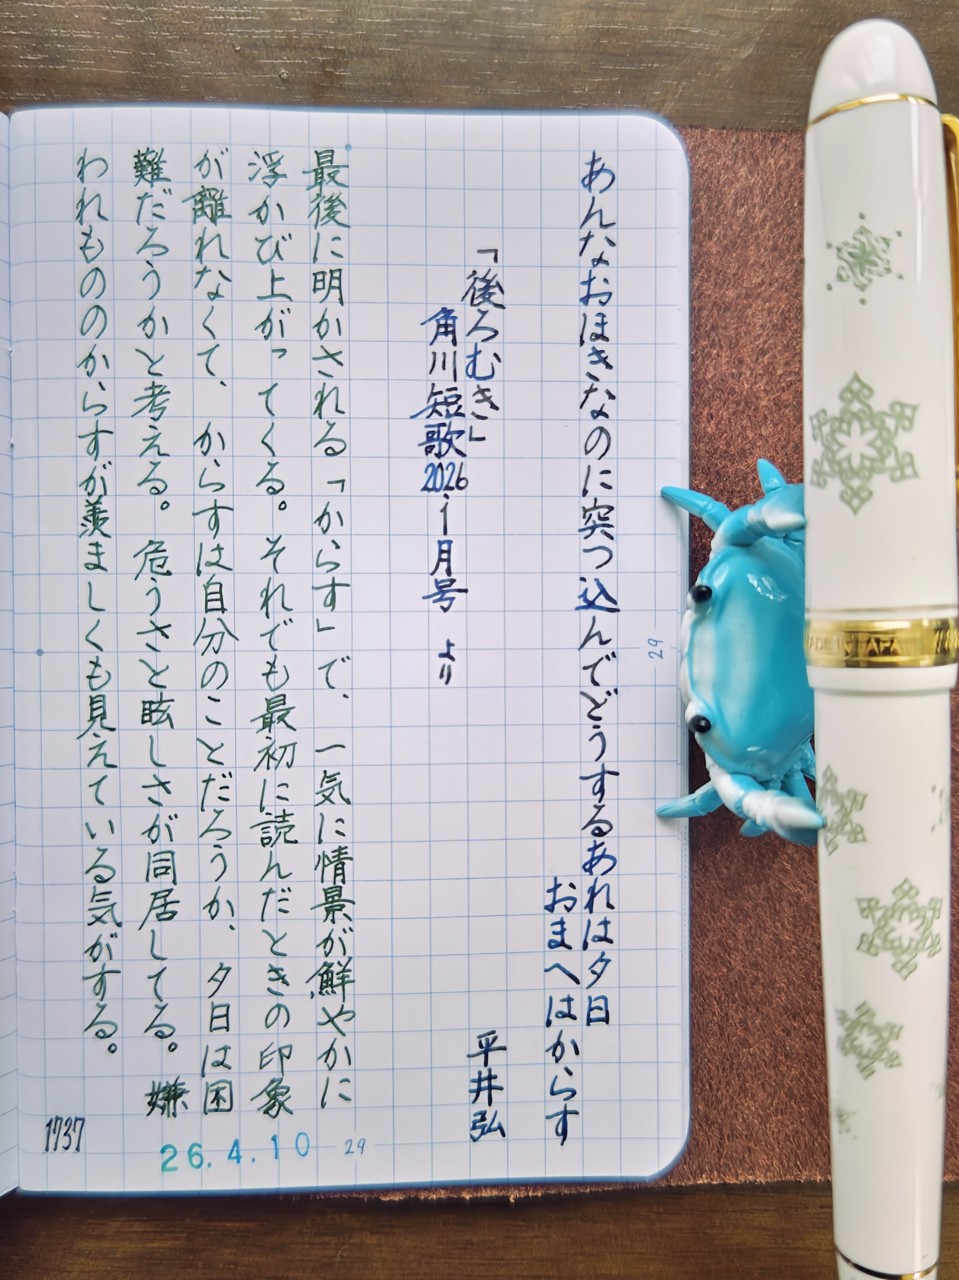 あんなおほきなのに突つ込んでどうするあれは夕日
おまへはからす
平井弘
「後ろむき」
角川短歌2026年1月号 より
最後に明かされる「からす」で、一気に情景が鮮やかに
浮かび上がってくる。それでも最初に読んだときの印象
が離れなくて、からすは自分のことだろうか、夕日は困
難だろうかと考える。危うさと眩しさが同居してる。嫌
われもののからすが羨ましくも見えている気がする。
1737
26.4.10
29
29
MADE IN JAPAN